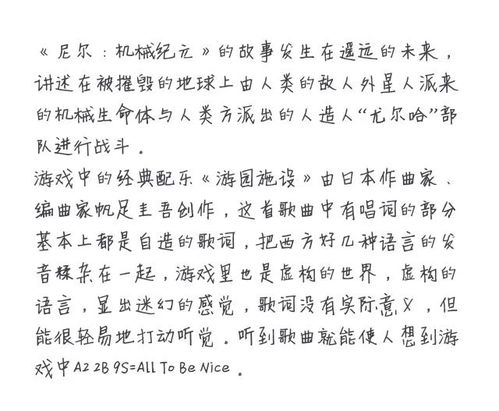 《尼尔:机械纪元》的故事发生在遥远的未来,
讲述在被摧毁的地球上由人类的敌人外星人派来
的机械生命体与人类方派出的人造人“尤尔哈”部
队进行战斗。
游戏中的经典配乐《游园施设》由日本作曲家、
编曲家帆足圭吾创作,这首歌曲中有唱词的部分
基本上都是自造的歌词,把西方好几种语言的发
音糅杂在一起,游戏里也是虚构的世界,虚构的
语言,显出迷幻的感觉,歌词没有实际意义,但
能很轻易地打动听觉。听到歌曲就能使人想到游
戏中A2 2B 9S=All To Be Nice。